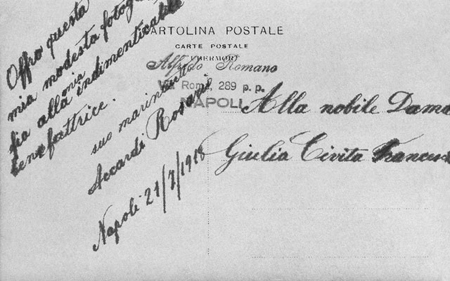 Offro questa
mia modesta fotogra
fia alla mia indimenticabile
benefattrice.
suo marinaio
Accardi Rosario
Napoli 21/7/1918
CARTOLINA POSTALE
CARTE POSTALE
Alfredo Romano
Via Roma, 289 p. p.
NAPOLI
Alla nobile Dama
Giulia Civita Frances